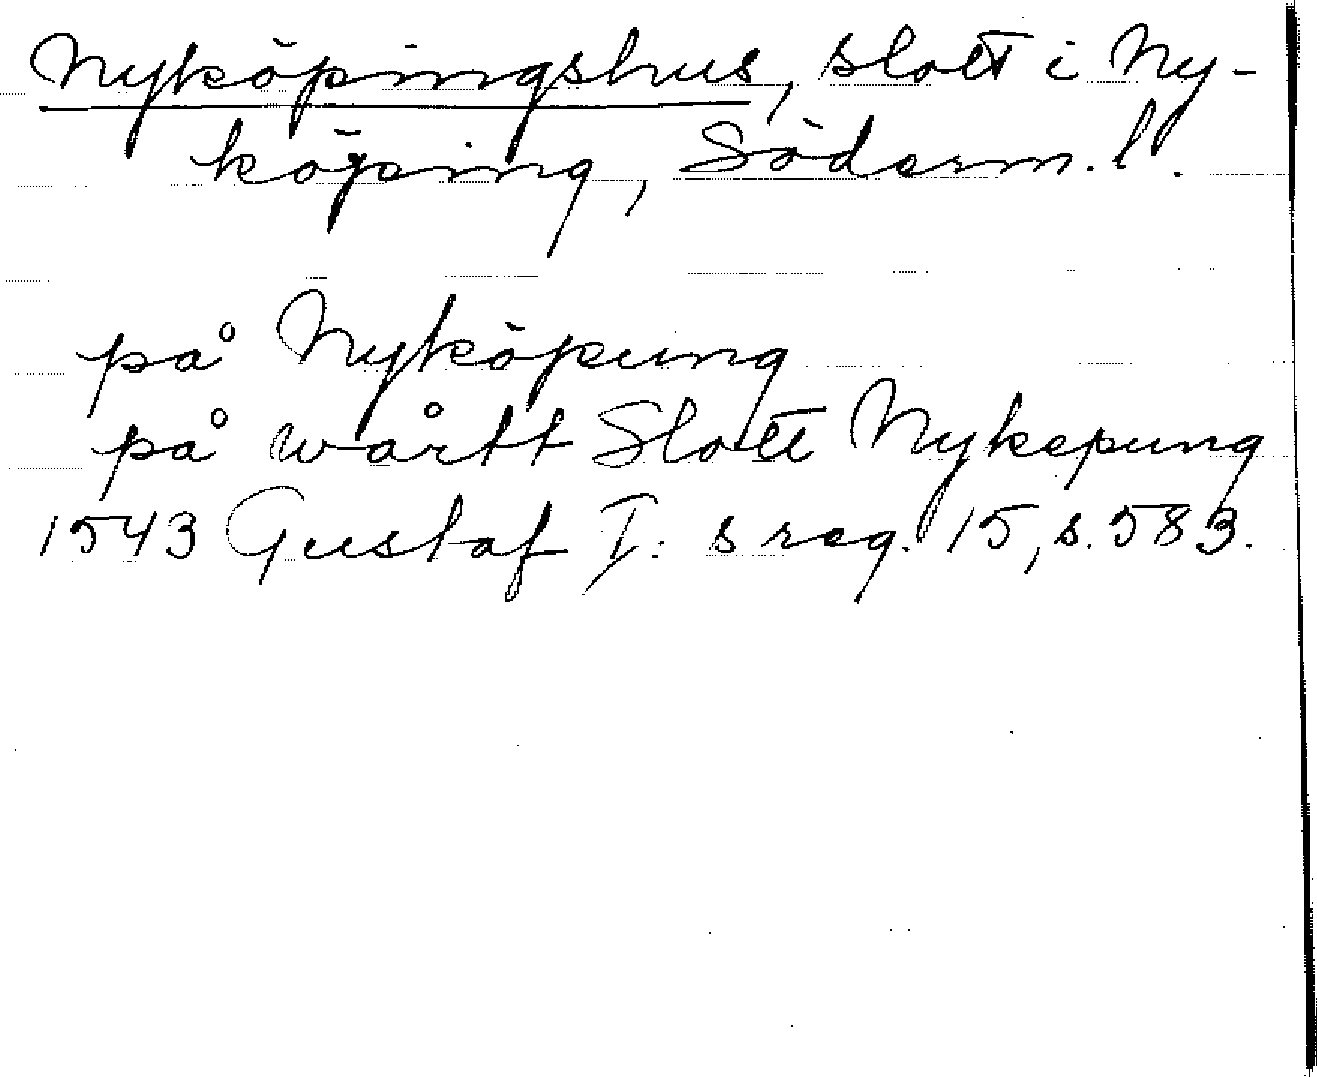 Nyköpingshus, slott i Ny-
köping, Söderm. l.
på Nyköpung
på wårtt Slott Nykepung
1543 Gustaf I: s reg. 15, s. 583.